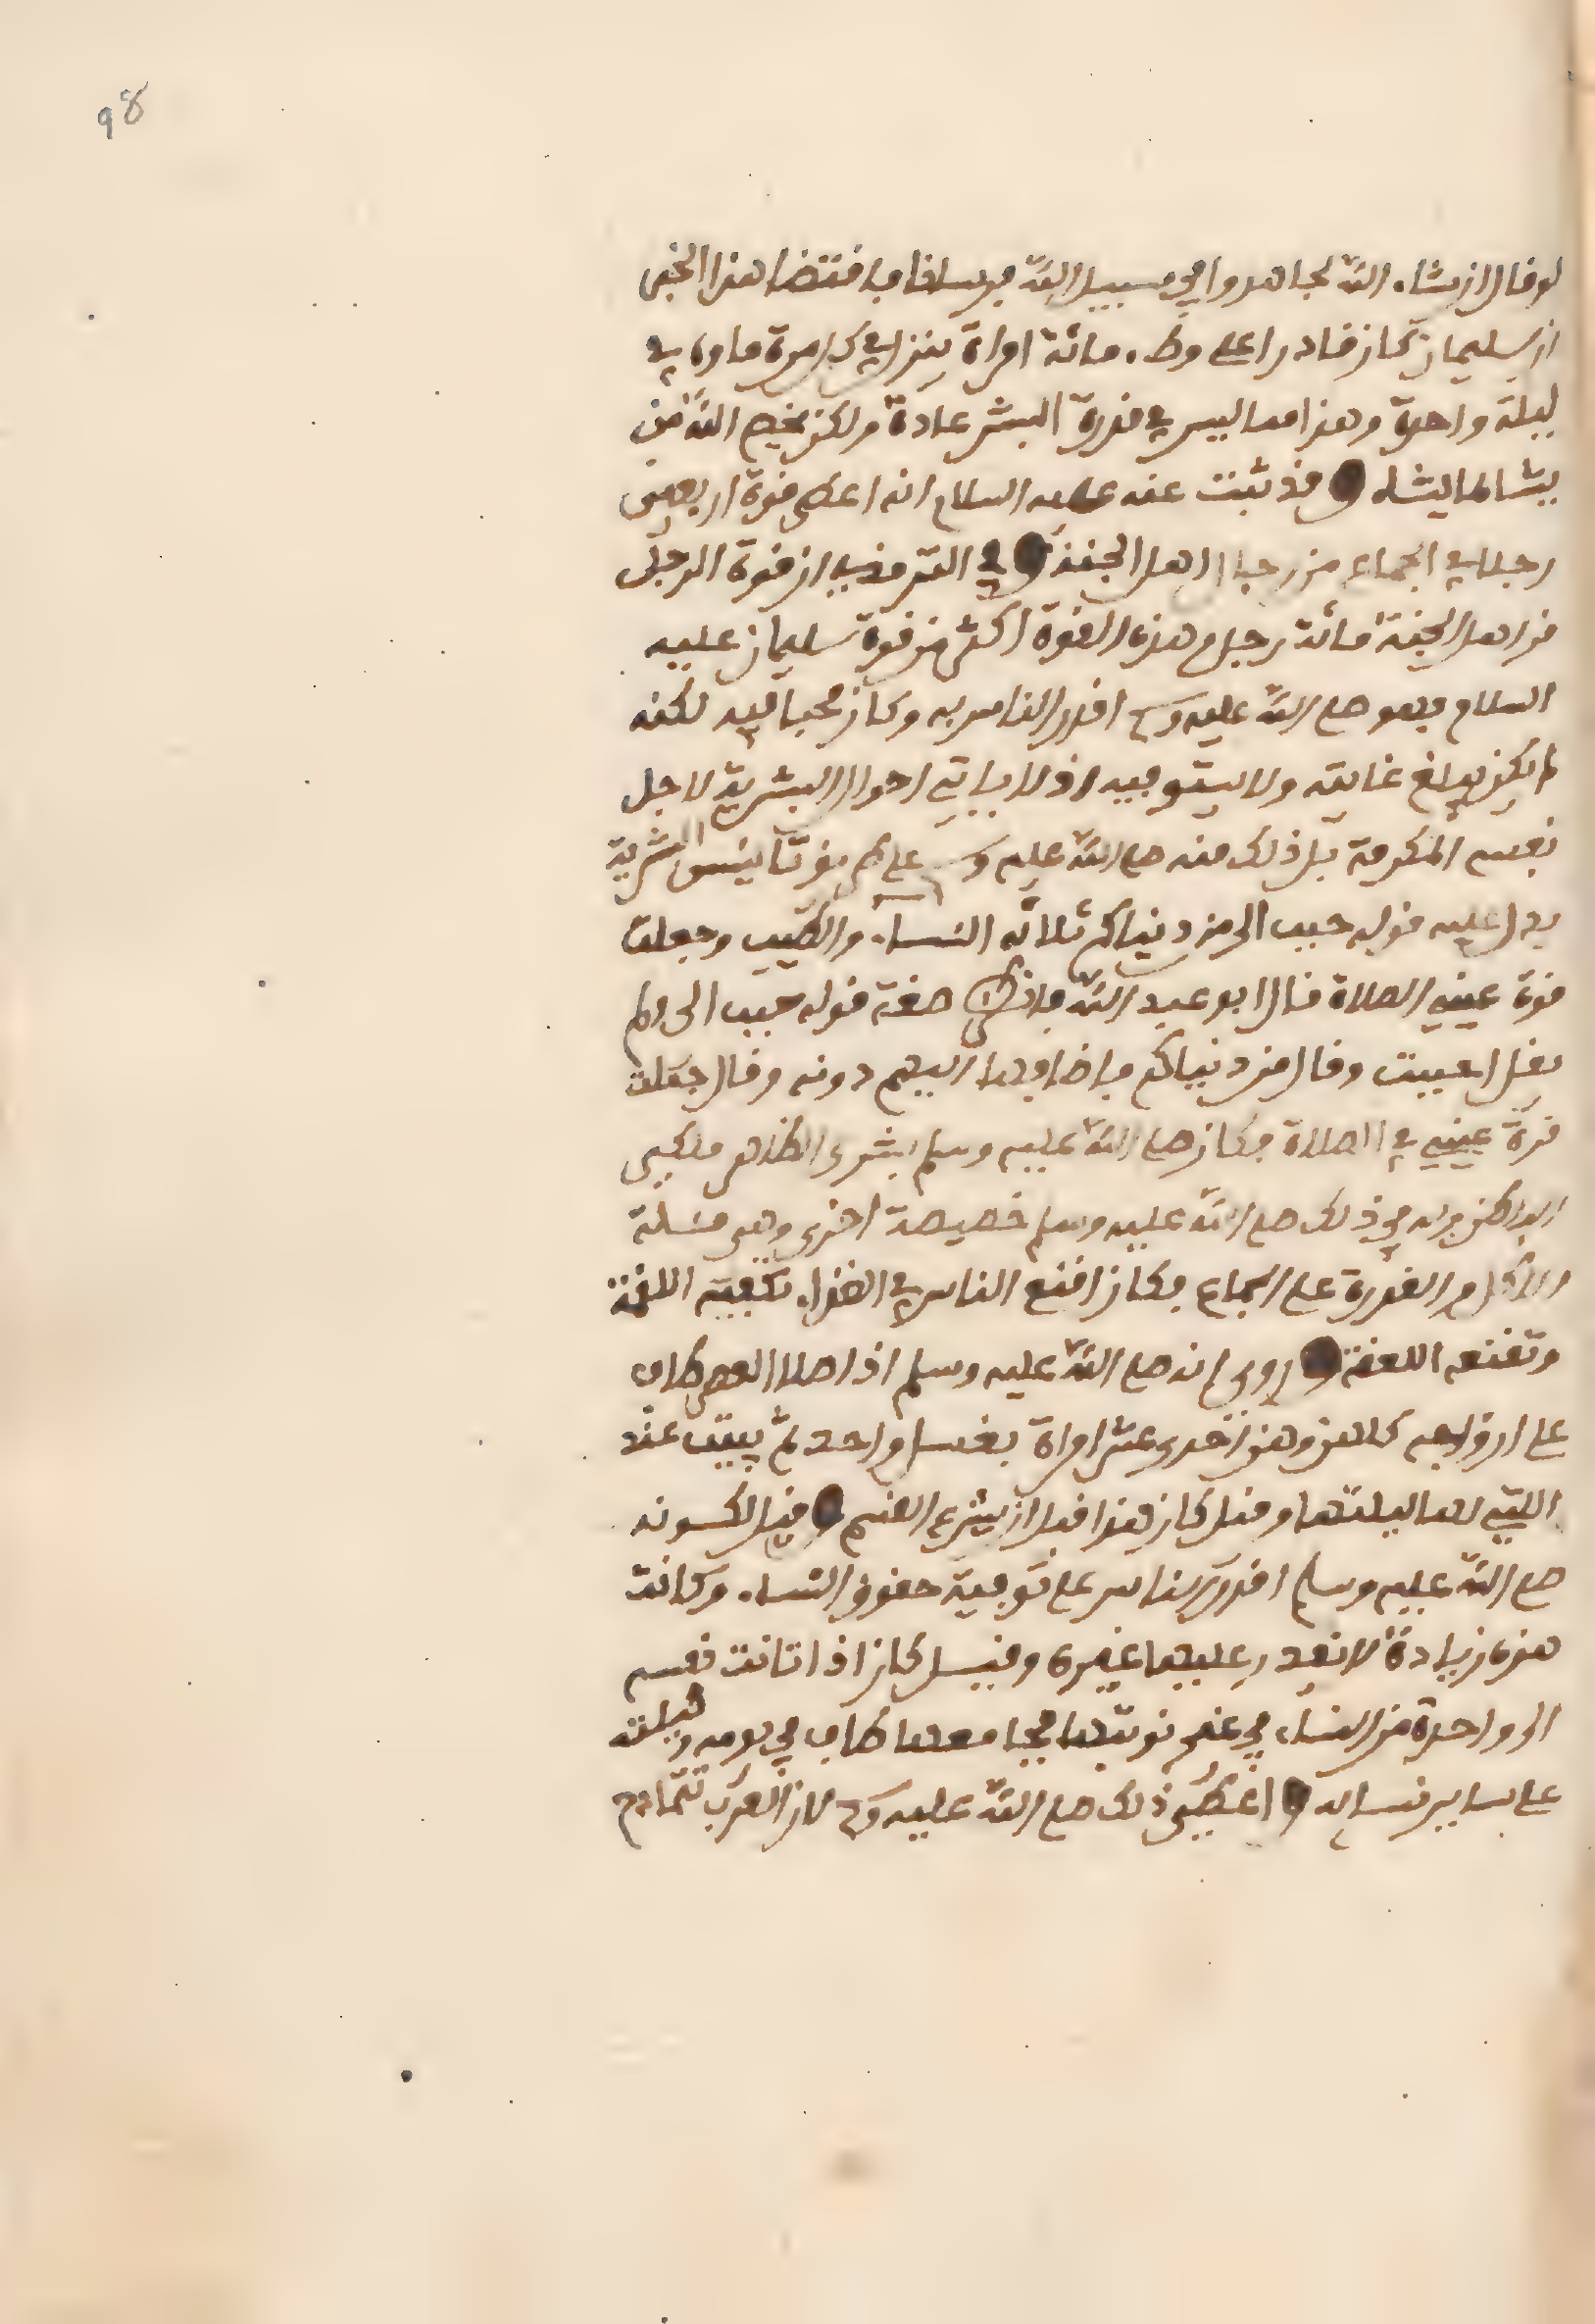 98
لو قال ان شاء الله لجاهدوا في سبيل الله فرسانا فاقتضا هذا الخبر
ان سليمان كان قادرا على وطء مائة امراة ينزل في كل امرة ماءه في
ليلة واحدة وهذا مما ليس في قدرة البشر عادة ولكن يخص الله من
يشا لما يشاء وقد ثبت عنه عليه السلام انه اعطي قوة اربعين
رجلا في الجماع من رجال اهل الجنة وفي الترمذي ان قوة الرجل
من اهل الجنة مائة رجل وهذه القوة اكثر من قوة سليمان عليه
السلام فهو صلى الله عليه وسلم اقدر الناس به وكان محبا فيه لكنه
لم يكن يبلغ غايته ولا يستوفيه اذ لا ياتي احوال البشرية لاجل
نفسه المكرمة بل ذلك منه صلى الله عليه وسلم على البشرية
يدل عليه قوله حبب الي من دنياكم ثلاث النساء والطيب وجعلت
قرة عيني الصلاة قال ابو عبد الله فانظر صفة قوله حبب الي ولم
يقل احببت وقال من دنياكم فاضافها اليهم دونه وقال جعلت
قرة عيني في الصلاة فكان صلى الله عليه وسلم بشري الظاهر ملكي
الباطن وله في ذلك صلى الله عليه وسلم خصيصة اخرى وهي مسلة
الاكل والقدرة على الجماع فكان اقنع الناس في الغذاء تكفيه اللقمة
وتقنعه اللعقة وروي انه صلى الله عليه وسلم اذا صلا العصر طاف
على ازواجه كلهن وهن احدى عشر امراة بغسل واحد ثم يبيت عند
التي لها ليلتها وقيل كان هذا قبل ان يشرع القسم وقيل لكونه
صلى الله عليه وسلم اقدر الناس على توفية حقوق النساء وكانت
هذه زيادة لا يقدر عليها غيره وقيل كان اذا تاقت نفسه
الى واحدة من النساء في غير نوبتها فجامعها طاف في يومه وليلته
على ساير نسايه واعطي ذلك صلى الله عليه وسلم لان العرب تتمادح